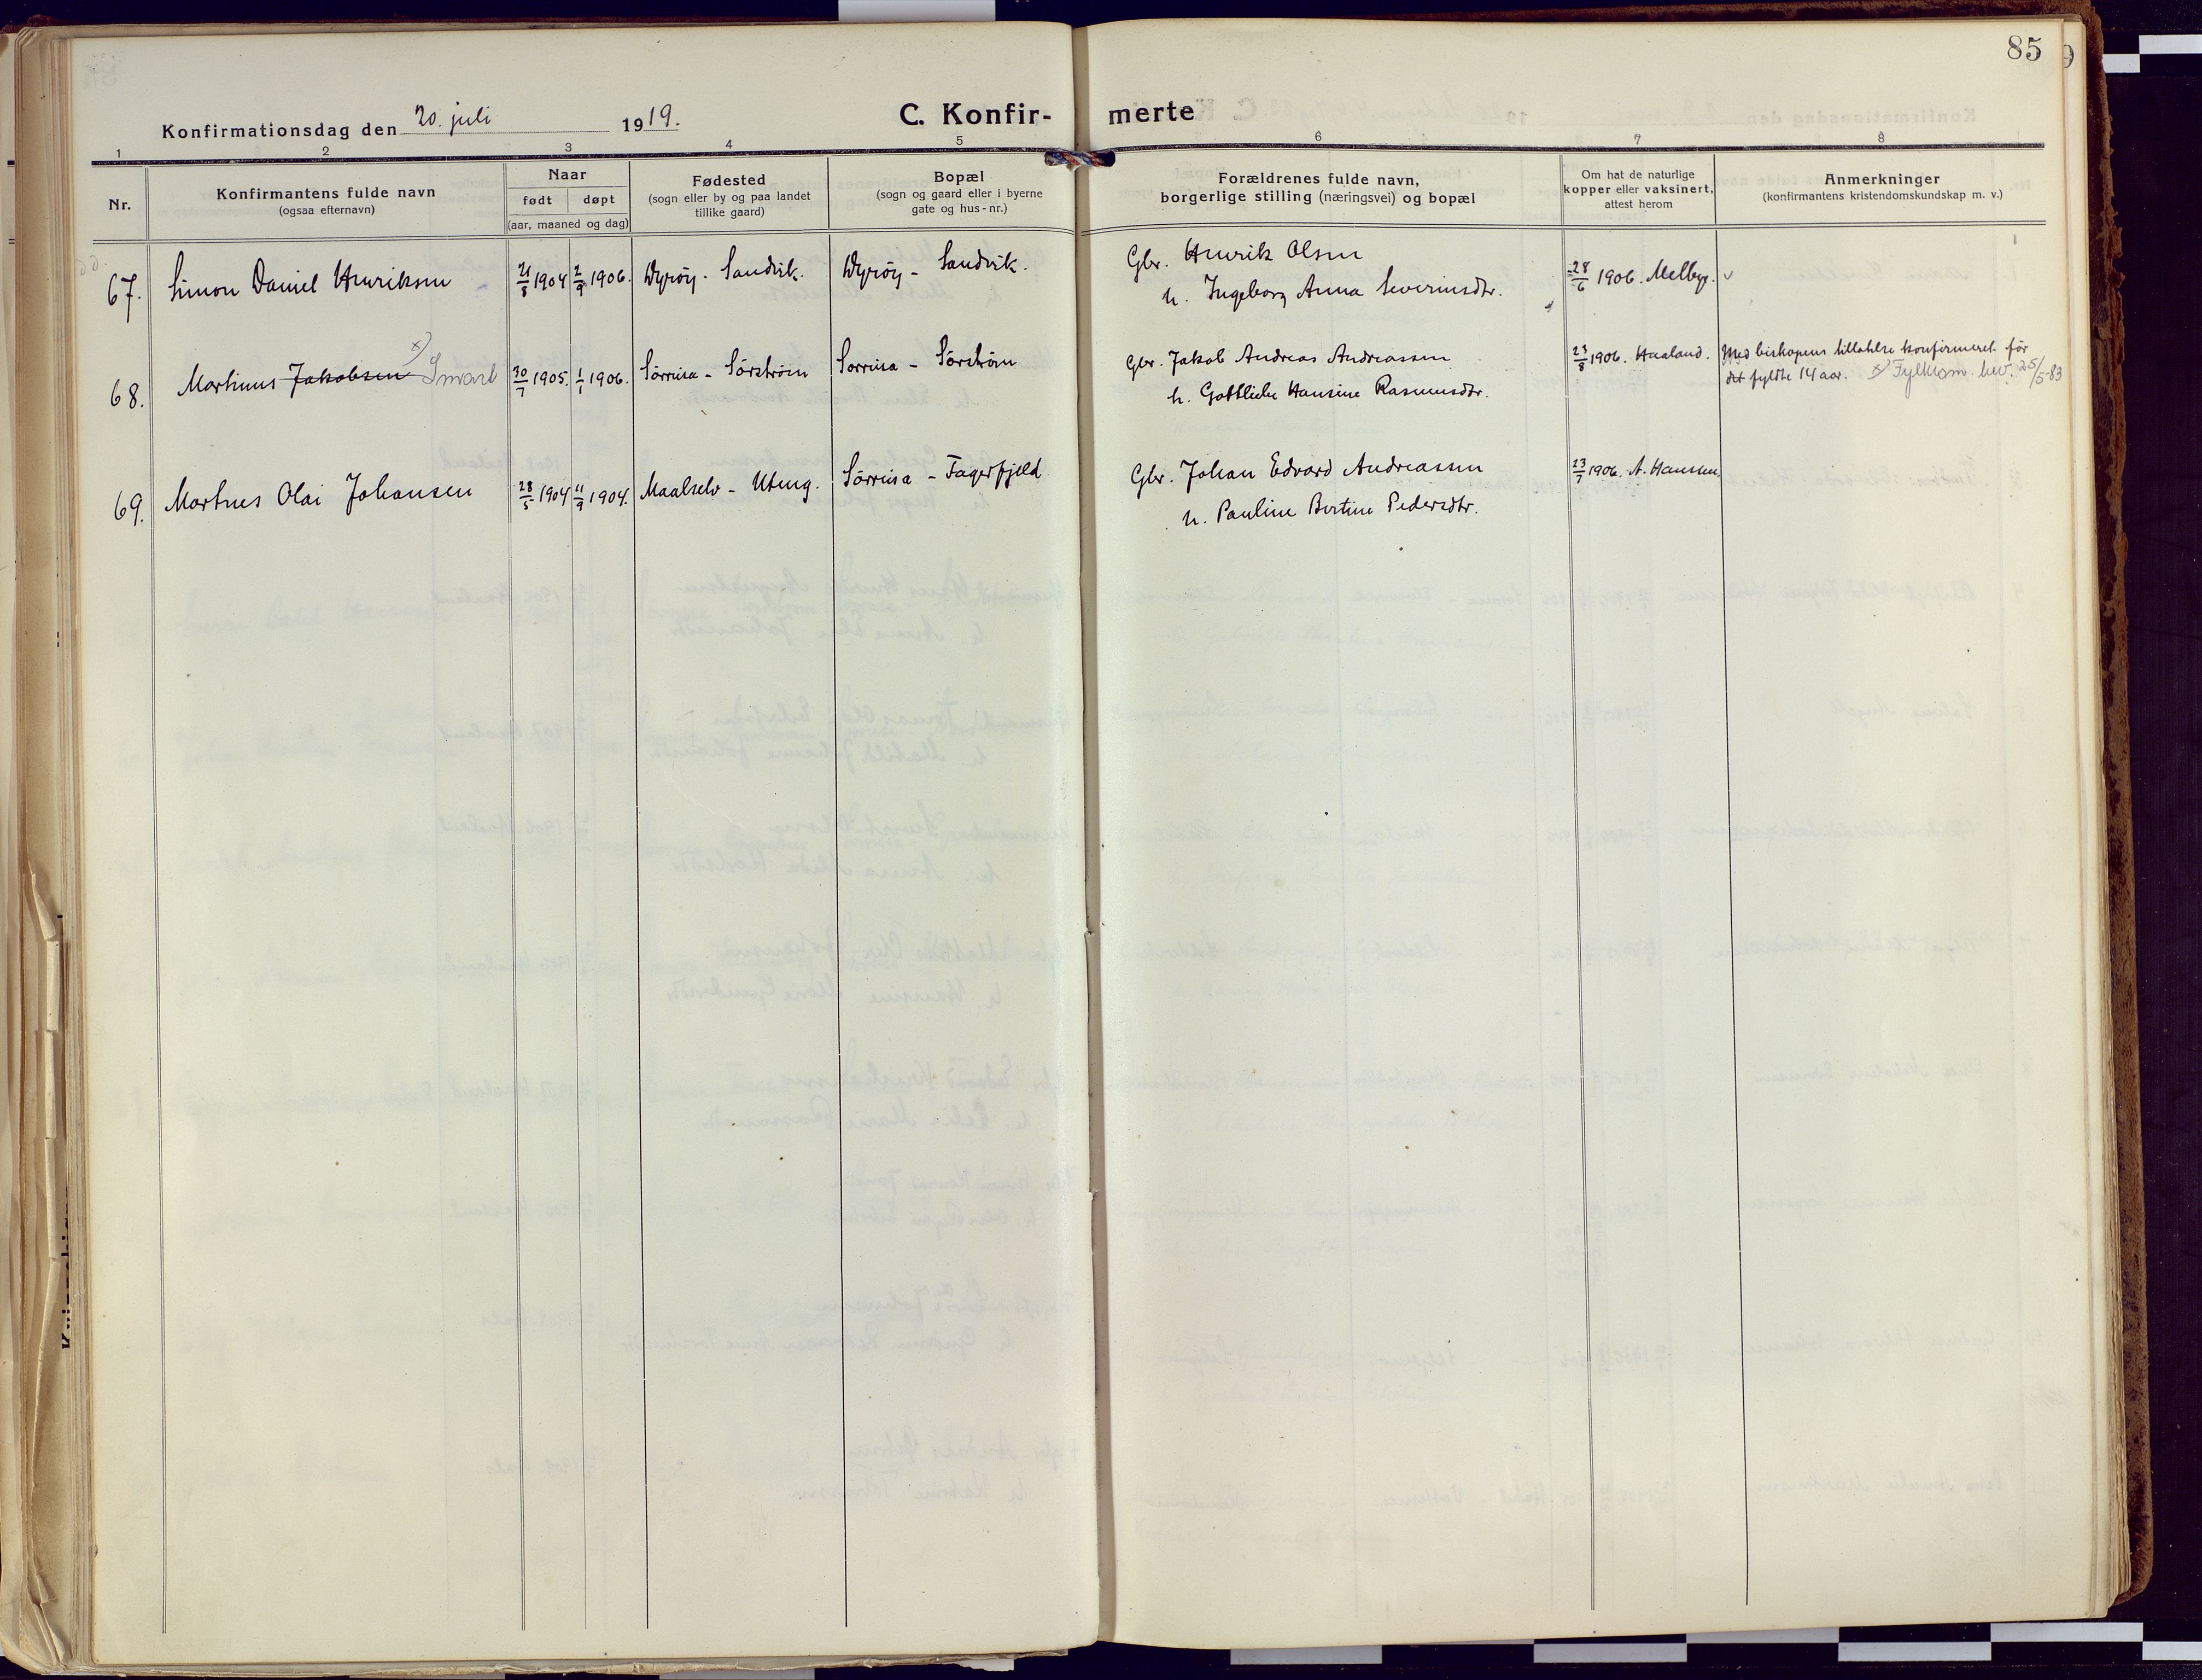 85
Konfirmationsdag den 20. juli 1919.
C. Konfirmerte
1 2 3 4 5 6 7 8
Nr.
Konfirmantens fulde navn
(ogsaa efternavn)
Naar
født døpt
(aar, maaned og dag)
Fødested
(sogn eller by og paa landet
tillike gaard)
Bopæl
(sogn og gaard eller i byerne
gate og hus-nr.)
Forældrenes fulde navn,
borgerlige stilling (næringsvei) og bopæl
Om hat de naturlige
kopper eller vaksinert,
attest herom
Anmerkninger
(konfirmantens kristendomskundskap m. v.)
67. Simon Daniel Henriksen 21/8 1904 2/9 1906. Dyrøy - Sandvik. Dyrøy - Sandvik. Gbr. Henrik Olsen 28/6 1906. Melbye.
h. Ingeborg Anna Severinsdtr.
68. Martinus Jakobsen x) Smart 30/7 1905. 1/1 1906. Sörreisa - Sörström Sorreisa - Sörström Gbr. Jakob Andreas Andreassen 23/8 1906. Haaland. Med biskopens tillatelse konfirmeret før
h. Gottliebe Hansine Rasmusdtr. det fyldte 14 aar. x) Fylkesm. bev. 25/5-83
69. Martnes Olai Johansen 28/5 1904 11/9 1904. Maalselv - Uteng. Sörreisa - Fagerfjeld Gbr. Johan Edvard Andreassen 23/7 1906. A. Hanssen
h. Pauline Bertine Pedersdtr.